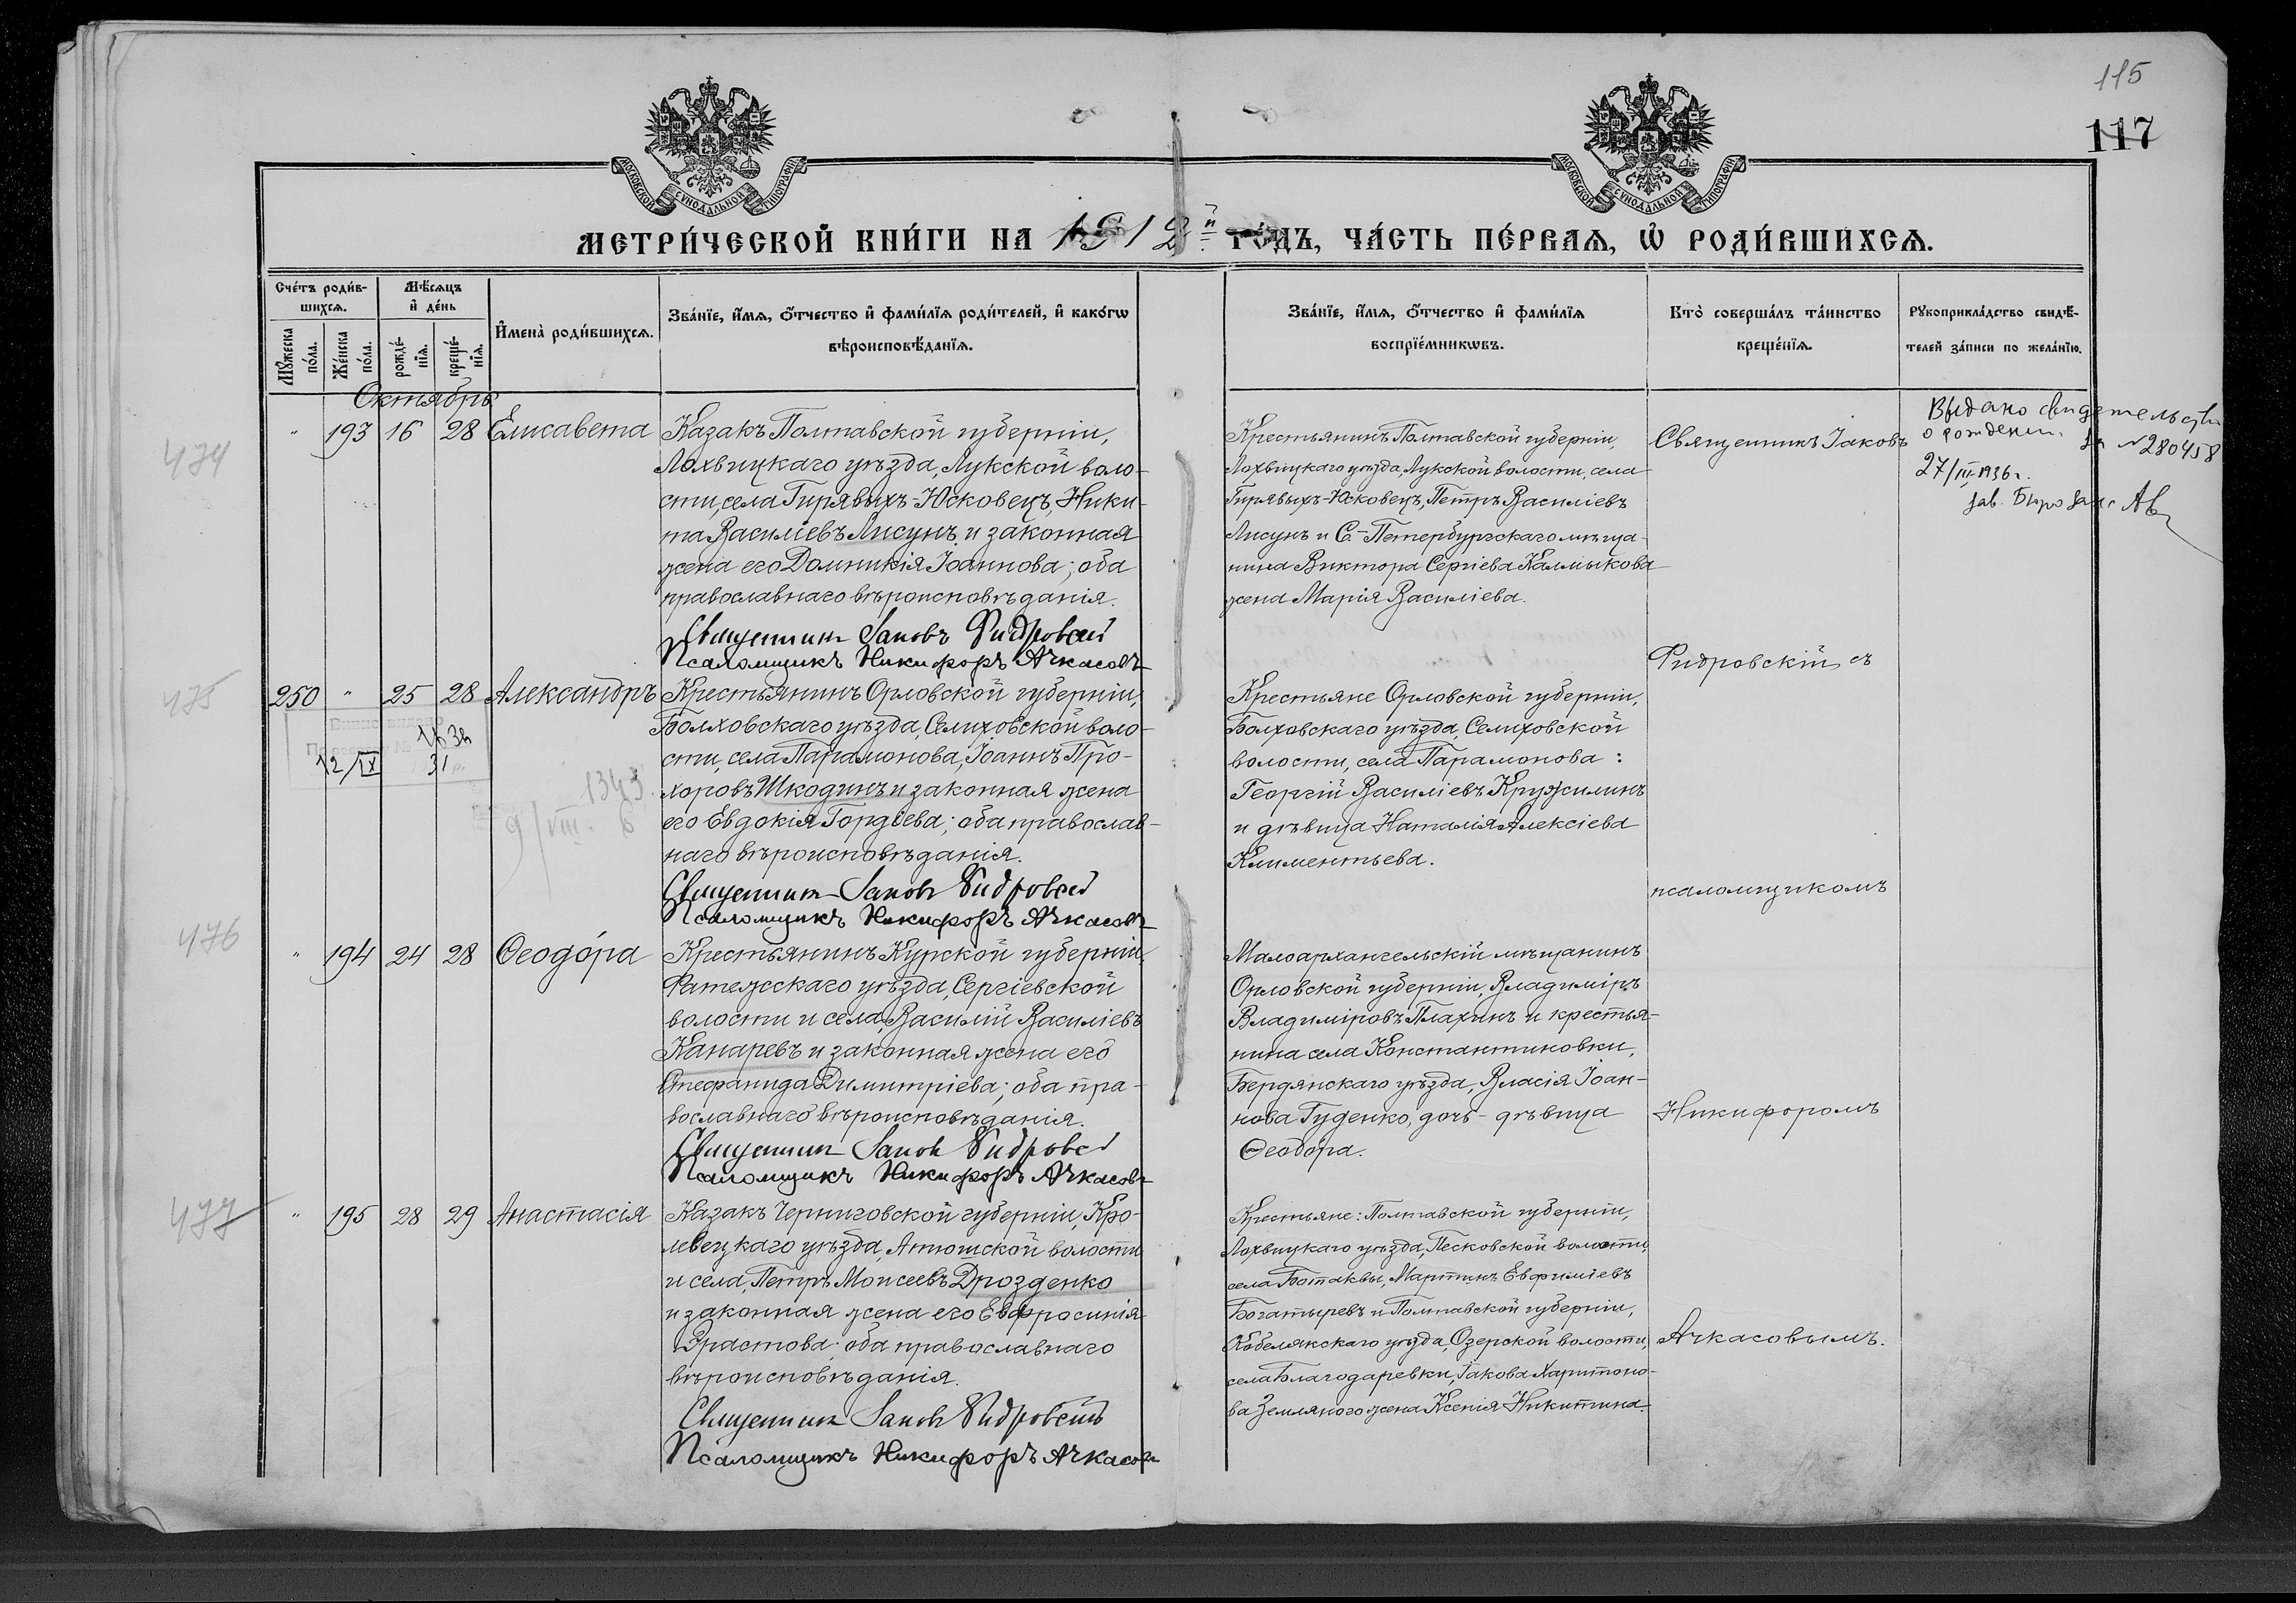 115
117
МОСКОВСКОЙ СѴНОДАЛЬНОЙ ТИПОГРАФІИ
МОСКОВСКОЙ СѴНОДАЛЬНОЙ ТИПОГРАФІИ
МЕТРИ́ЧЕСКОЙ КНИ́ГИ НА 1912й ГО́ДЪ, ЧА́СТЬ ПЕ́РВАЯ, Ѡ҆ РОДИ́ВШИХСЯ.
Сче́тъ роди́в-
шихся.
Мꙋ́жеска по́ла.
Же́нска по́ла.
Мѣ́сяцъ
и҆ де́нь
рожде́-
нїя.
креще́-
нїя.
И҆мена̀ роди́вшихся.
Зва́нїе, и҆́мя, ѻ҆́тчество и҆ фами́лїя роди́телей, и҆ како́гѡ
вѣроисповѣ́данїя.
Зва́нїе, и҆́мя, ѻ҆́тчество и҆ фами́лїя
воспрїе́мникѡвъ.
Кто̀ соверша́лъ та́инство
креще́нїя.
Рꙋкоприкла́дство свидѣ́-
телей за́писи по жела́нїю.
Октябрь
474
" 193 16 28 Елисавета
Казакъ Полтавской губерніи,
Лохвицкаго уѣзда, Лукской воло-
сти, села Гирявыхъ-Юсковецъ, Ники-
та Василіевъ Лисунъ и законная
жена его Домникія Іоаннова; оба
православнаго вѣроисповѣданія.
Священникъ Іаковъ Фидровскій
Псаломщикъ Никифоръ Ачкасовъ
Крестьянинъ Полтавской губерніи,
Лохвицкаго уѣзда, Лукской волости, села
Гирявыхъ-Юсковецъ, Петръ Василіевъ
Лисунъ и С.-Петербургскаго мѣща-
нина Виктора Сергіева Калмыкова
жена Марія Василіева.
Священникъ Іаковъ
Фидровскій съ
Выдано свидетельство
о рождении за №280458
27/III 1936 г.
зав. Бюро загс
475
250 " 25 28 Александръ
12/IX 31
1343
9/VIII. 6
Крестьянинъ Орловской губерніи,
Болховскаго уѣзда, Селиховской воло-
сти, села Парамонова, Іоаннъ Про-
хоровъ Шкодинъ и законная жена
его Евдокія Гордіева; оба православ-
наго вѣроисповѣданія.
Священникъ Іаковъ Фидровскій
Псаломщикъ Никифоръ Ачкасовъ
Крестьяне Орловской губерніи,
Болховскаго уѣзда, Селиховской
волости, села Парамонова:
Георгій Василіевъ Кружилинъ
и дѣвица Наталія Алексіева
Климентьева.
псаломщикомъ
476
" 194 24 28 Ѳеодо́ра
Крестьянинъ Курской губерніи,
Фатежскаго уѣзда, Сергіевской
волости и села, Василій Василіевъ
Канаревъ и законная жена его
Стефанида Димитріева; оба пра-
вославнаго вѣроисповѣданія.
Священникъ Іаковъ Фидровскій
Псаломщикъ Никифоръ Ачкасовъ
Малоархангельскій мѣщанинъ
Орловской губерніи, Владиміръ
Владиміровъ Плахинъ и крестья-
нина села Константиновки,
Бердянскаго уѣзда, Власія Іоан-
нова Гуденко, дочь-дѣвица
Ѳеодора.
Никифоромъ
477
" 195 28 29 Анастасія
Казакъ Черниговской губерніи, Кро-
левецкаго уѣзда, Атюшской волости
и села, Петръ Моисеевъ Дрозденко
и законная жена его Евфросинія
Эрастова; оба православнаго
вѣроисповѣданія.
Священникъ Іаковъ Фидровскій
Псаломщикъ Никифоръ Ачкасовъ
Крестьяне: Полтавской губерніи,
Лохвицкаго уѣзда, Песковской волости,
села Ботаквы, Мартинъ Евфиміевъ
Богатыревъ и Полтавской губерніи,
Кобелякскаго уѣзда, Озерской волости,
села Благодаревки, Іакова Харитоно-
ва Земляного жена Ксенія Никитина.
Ачкасовымъ.